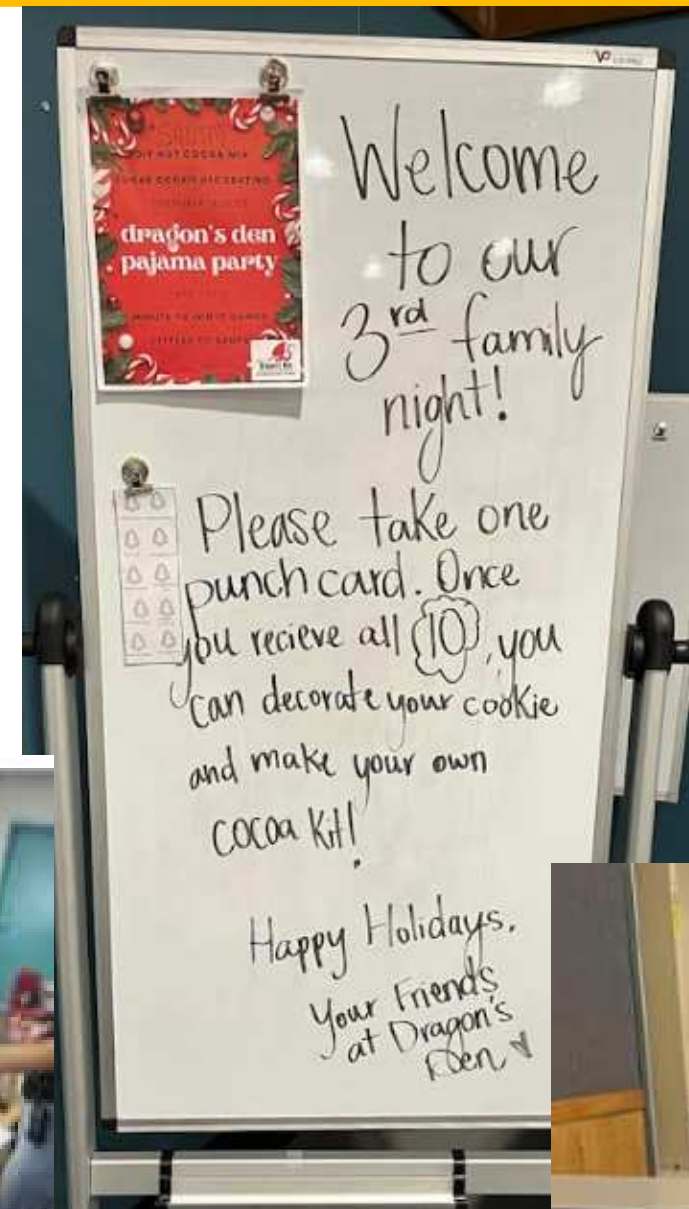 DIY HOT COCOA MIX
SUGAR COOKIE DECORATING
dragon's den
pajama party
MINUTE TO WIN IT GAMES
LETTERS TO SANTA
Welcome
to our
3rd family
night!
Please take one
punch card. Once
you recieve all 10, you
can decorate your cookie
and make your own
cocoa kit!
Happy Holidays,
Your Friends
at Dragon's
Den